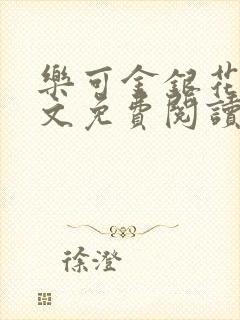 樂可金銀花
文免費閱讀
徐澄